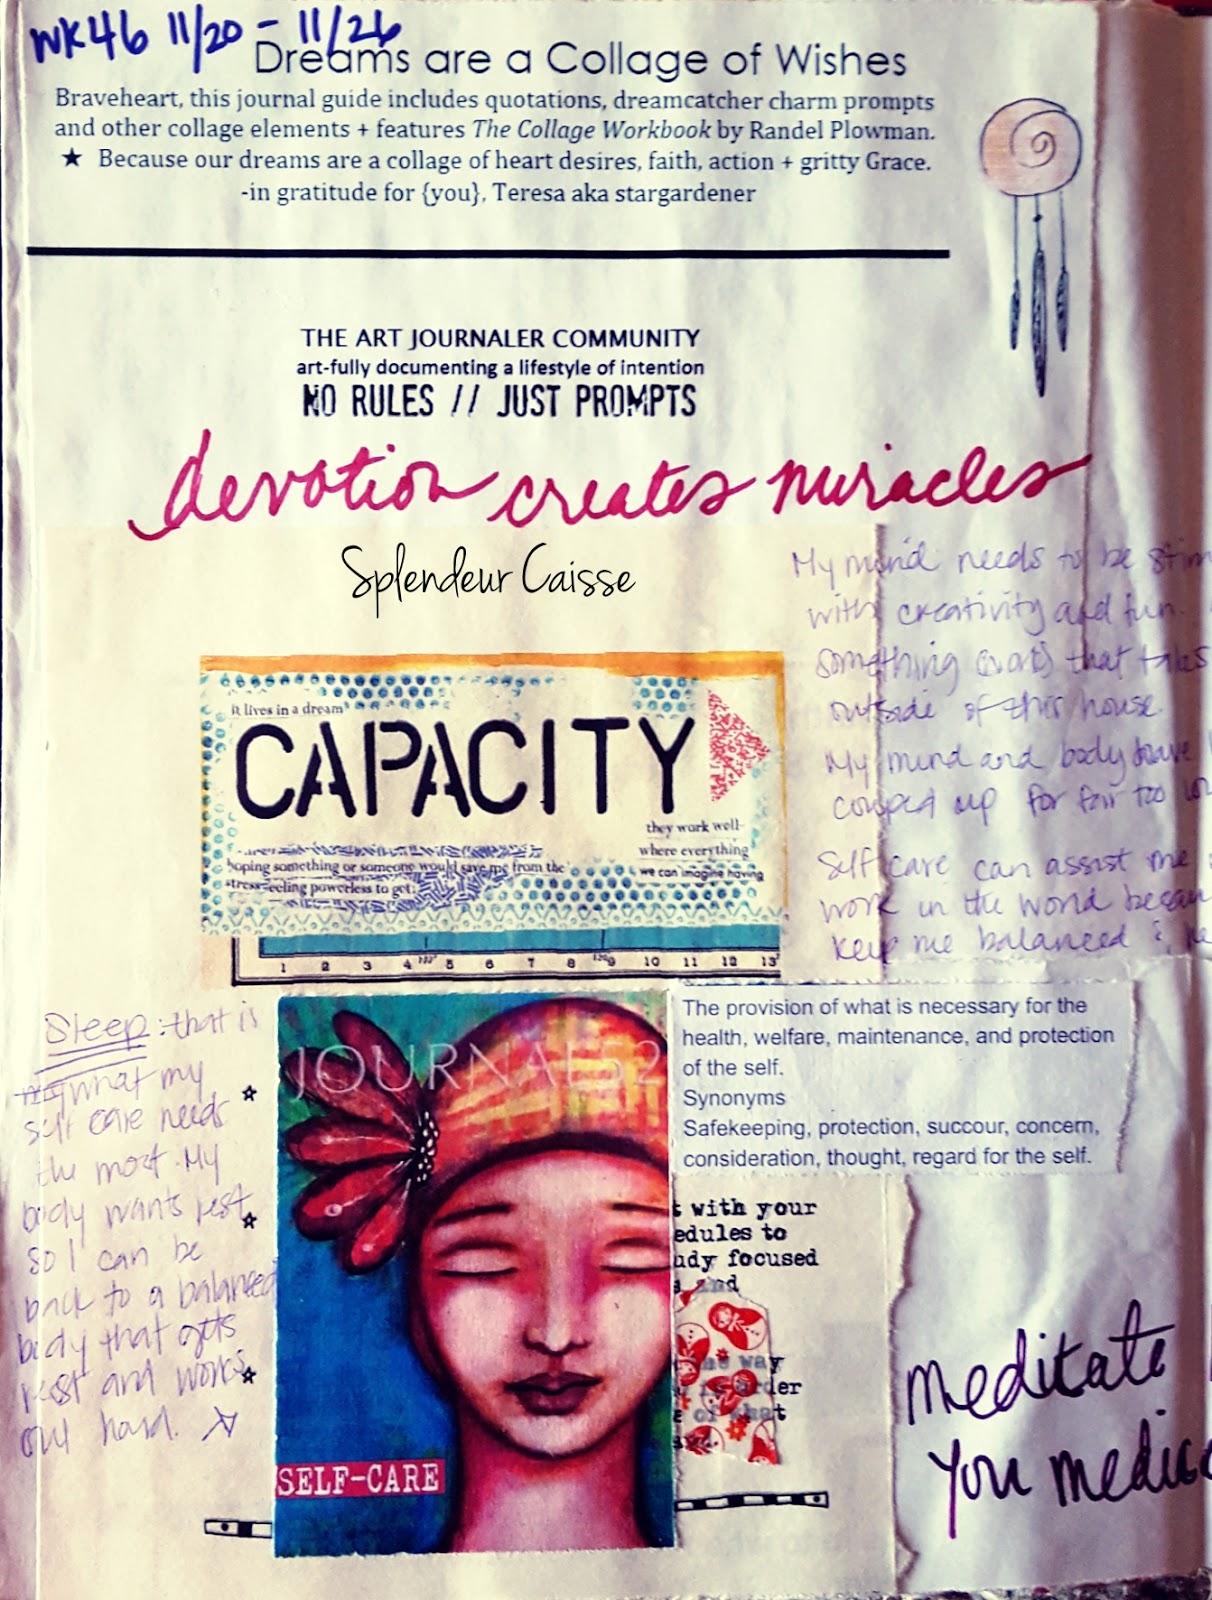 WK46 11/20 - 11/26
Dreams are a Collage of Wishes
Braveheart, this journal guide includes quotations, dreamcatcher charm prompts
and other collage elements + features The Collage Workbook by Randel Plowman.
★ Because our dreams are a collage of heart desires, faith, action + gritty Grace.
-in gratitude for {you}, Teresa aka stargardener
THE ART JOURNALER COMMUNITY
art-fully documenting a lifestyle of intention
NO RULES // JUST PROMPTS
devotion creates miracles
Splendeur Caisse
My mind needs to be stim
with creativity and fun.
something that takes
outside of this house.
My mind and body have
cooped up for far too lon
Self care can assist me
work in the world
keep me balanced &
it lives in a dream
CAPACITY
they work well
where everything
we can imagine having
hoping something or someone would save me from the
stress feeling powerless to get
1 2 3 4 5 6 7 8 9 10 11 12 13
Sleep: that is
what my
self care needs
the most. My
body wants rest
so I can be
back to a balanced
body that gets
rest and works
out hard.
JOURNAL52
SELF-CARE
The provision of what is necessary for the
health, welfare, maintenance, and protection
of the self.
Synonyms
Safekeeping, protection, succour, concern,
consideration, thought, regard for the self.
t with your
edules to
udy focused
and
way
order
of what
meditate
you medic